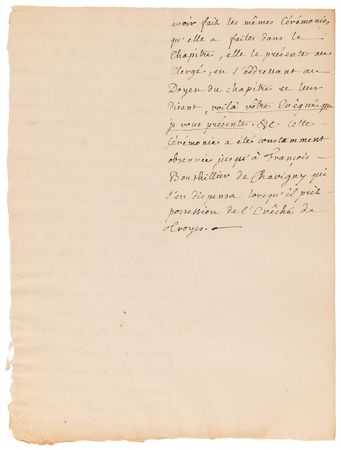 avoir fait les mêmes Cérémonies
qu'elle a faites dans le
Chapitre, elle le présente au
Clergé, en s'addressant au
Doyen du chapitre et leur
disant, voilà vôtre Evêque que
je vous présente. &c. Cette
Cérémonie a été constamment
observée jusqu'à François
Bouthillier de Chavigny qui
s'en dispensa lorsqu'il prit
possession de l'Evêché de
Troyes.